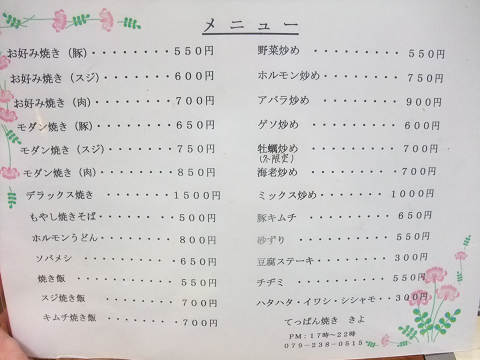 メニュー
お好み焼き（豚）・・・・・・・・550円
お好み焼き（スジ）・・・・・・・600円
お好み焼き（肉）・・・・・・・・700円
モダン焼き（豚）・・・・・・・・650円
モダン焼き（スジ）・・・・・・・750円
モダン焼き（肉）・・・・・・・・850円
デラックス焼き・・・・・・・・1500円
もやし焼きそば・・・・・・・・500円
ホルモンうどん・・・・・・・・800円
ソバメシ・・・・・・・・・・650円
焼き飯・・・・・・・・・・・550円
スジ焼き飯・・・・・・・・・700円
キムチ焼き飯・・・・・・・・700円
野菜炒め・・・・・・・・・550円
ホルモン炒め・・・・・・・・750円
アバラ炒め・・・・・・・・・900円
ゲソ炒め・・・・・・・・・600円
牡蠣炒め・・・・・・・・・700円
（冬限定）
海老炒め・・・・・・・・・700円
ミックス炒め・・・・・・・1000円
豚キムチ・・・・・・・・・650円
砂ずり・・・・・・・・・・550円
豆腐ステーキ・・・・・・・300円
チヂミ・・・・・・・・・・550円
ハタハタ・イワシ・シシャモ・・300円
てっぱん焼き きよ
PM：17時〜22時
079-238-0515